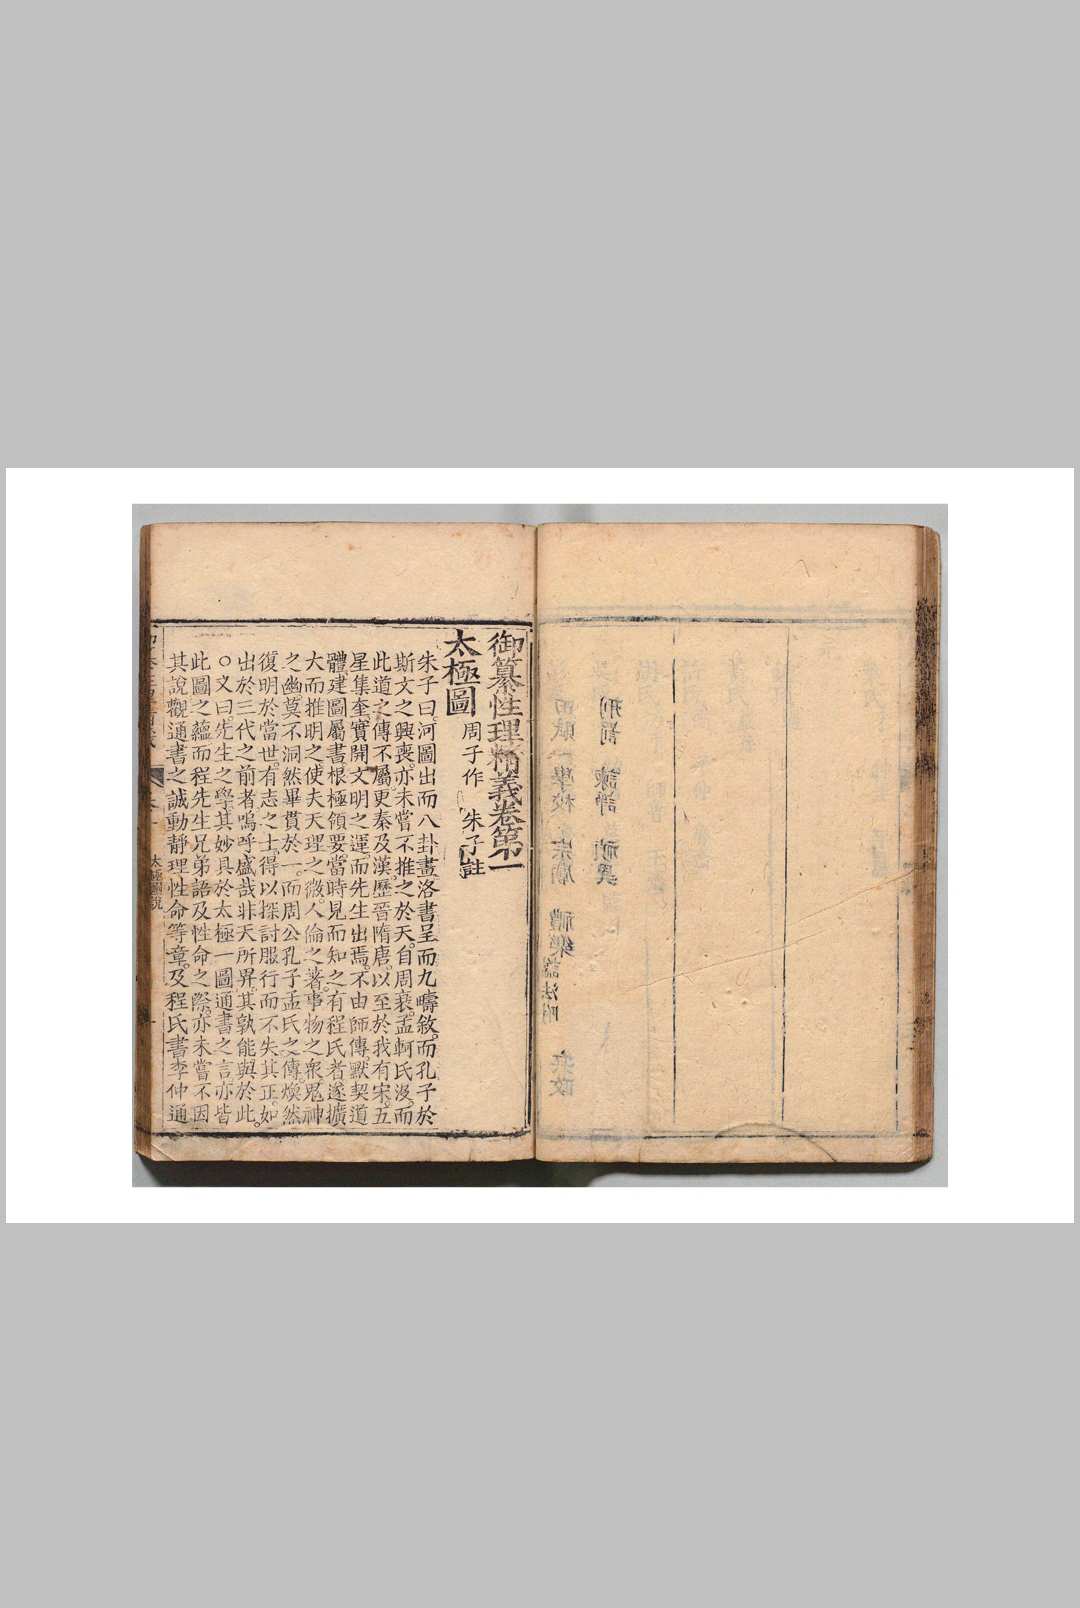 御纂性理精義卷第一
太極圖 周子作 朱子註
朱子曰河圖出而八卦畫洛書呈而九疇敘而孔子於
斯文之興喪亦未嘗不推之於天自周衰孟軻氏沒而
此道之傳不屬更秦及漢歷晉隋唐以至於我有宋五
星集奎實開文明之運而先生出焉不由師傳默契道
體建圖屬書根極領要當時見而知之有程氏者遂擴
大而推明之使夫天理之微人倫之著事物之衆鬼神
之幽莫不洞然畢貫於一而周公孔子孟氏之傳煥然
復明於當世有志之士得以探討服行而不失其正如
出於三代之前者嗚呼盛哉非天所畀其孰能與於此
○又曰先生之學其妙具於太極一圖通書之言亦皆
此圖之蘊而程先生兄弟語及性命之際亦未嘗不因
其說觀通書之誠動靜理性命等章及程氏書李仲通
太極圖說
刑罰 諫諍 禎異
田賦 學校 宗廟 禮樂 諡法附 兵政